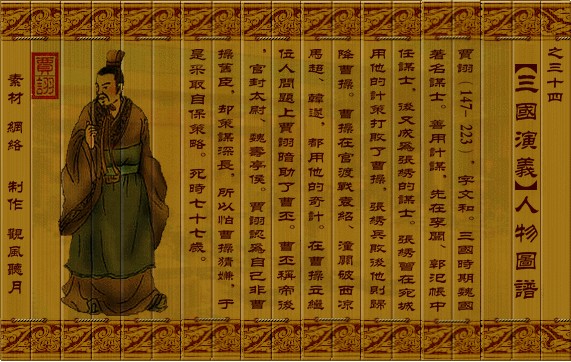 之三十四
【三國演義】人物圖譜
賈詡（147- 223），字文和。三國時期魏國
著名謀士。善用計謀。先在李閣、郭汜帳中
任謀士。後又成爲張綉的謀士。張綉曾在宛城
用他的計策打敗了曹操。張綉兵敗後他則歸
降曹操。曹操在官渡戰袁紹、潼關破西凉
馬超、韓遂，都用他的奇計。在曹操立繼
位人問題上賈詡暗助了曹丕。曹丕稱帝後
，官封太尉、魏壽亭侯。賈詡認爲自己非曹
操舊臣，却策謀深長，所以怕曹操猜嫌，于
是采取自保策略。死時七十七歲。
賈詡
素材 網絡 制作 觀風聽月